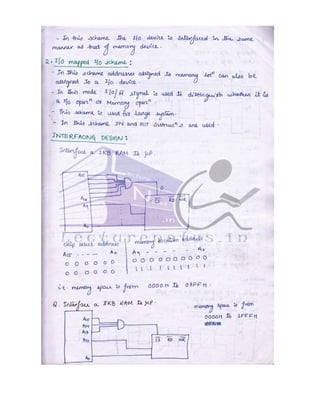 - In this scheme the I/O device is interfaced in the same
manner as that of memory device.
2. I/O mapped I/O scheme:
- In this scheme addresses assigned to memory locn can also be
assigned to a I/O device.
- In this mode I/O/M signal is used to distinguish whether it is
a I/O opern or Memory opern.
- This scheme is used for large system.
- In this scheme IN and OUT instrucns are used.
INTERFACING DESIGN:
Interface a 1KB RAM to μP.
A15
A10
A9
A0
CS RD WR
LectureNotes.in
chip select address memory location address
A15 - - - - A10 A9 - - - - - - A0
0 0 0 0 0 0 0 0 0 0 0 0 0 0 0 0
0 0 0 0 0 0 1 1 1 1 1 1 1 1 1 1
i.e. memory space is from 0000H to 03FFH
Q. Interface a 8KB RAM to μP. memory space is from
0000H to 1FFFH
A15
A14
A13
A0
CS RD WR